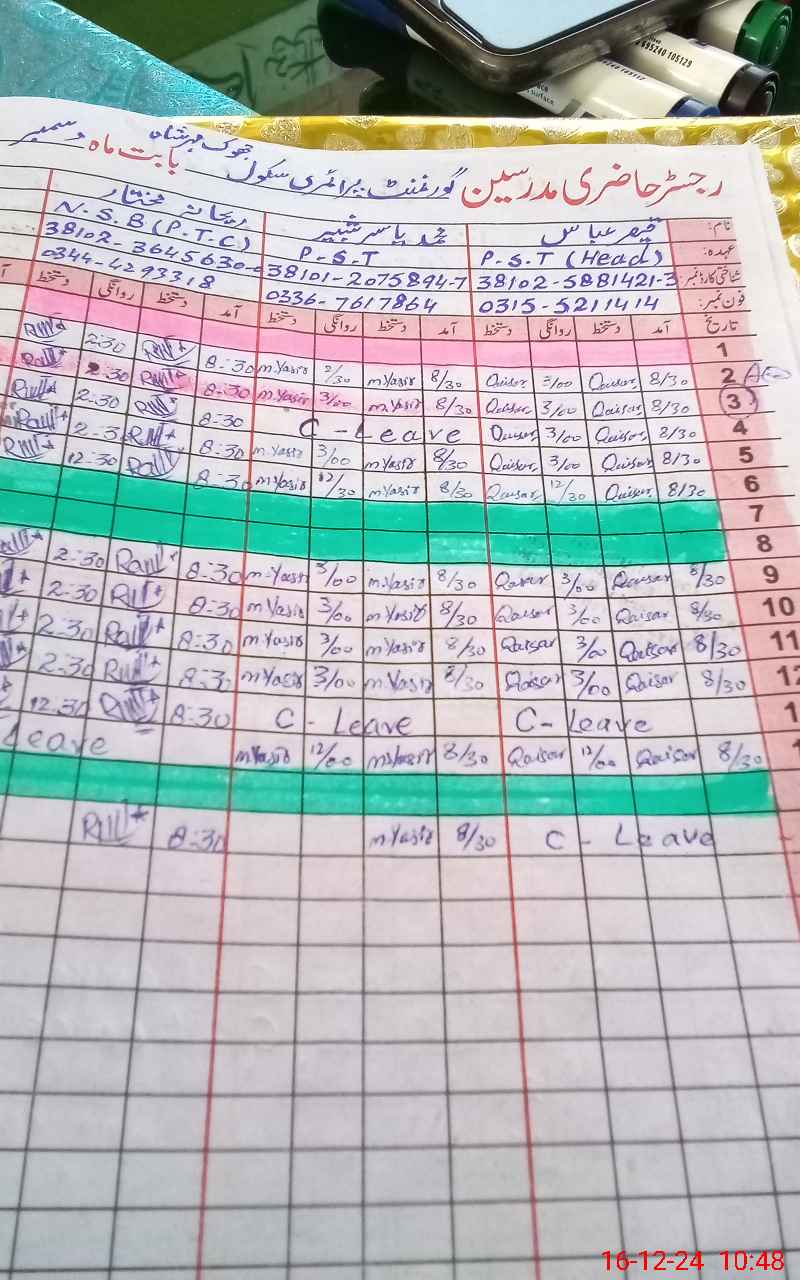 695240 105129
رجسٹر حاضری مدرسین گورنمنٹ پرائمری سکول بابت ماہ دسمبر
نام: قیصر عباس محمد یاسر شبیر ریحانہ مختار
عہدہ: P.S.T (Head) P-S-T N.S.B (P.T.C)
شناختی کارڈ نمبر: 38102-5881421-3 38101-2075894-7 38102-3645630-
فون نمبر: 0315-5211414 0336-7617864 0344-4293318
تاریخ آمد دستخط روانگی دستخط آمد دستخط روانگی دستخط آمد دستخط روانگی دستخط
1
2 8/30 Qaisar 3/00 Qaisar 8/30 m.Yasir 2/30 m.Yasir 8:30 2:30
3 8/30 Qaisar 3/00 Qaisar 8/30 m.Yasir 3/00 m.Yasir 8:30 2:30
4 8/30 Qaisar 3/00 Qaisar C-Leave 8:30 2:30
5 8/30 Qaisar 3/00 Qaisar 8/30 m.Yasir 3/00 m.Yasir 8:30
6 8/30 Qaisar 12/30 Qaisar 8/30 m.Yasir 12/30 m.Yasir 8:30 12:30
7
8
9 8/30 Qaisar 3/00 Qaisar 8/30 m.Yasir 3/00 m.Yasir 8:30 2:30
10 8/30 Qaisar 3/00 Qaisar 8/30 m.Yasir 3/00 m.Yasir 8:30 2:30
11 8/30 Qaisar 3/00 Qaisar 8/30 m.Yasir 3/00 m.Yasir 8:30 2:30
12 8/30 Qaisar 3/00 Qaisar 8/30 m.Yasir 3/00 m.Yasir 8:30 2:30
1 C-Leave C-Leave 8:30 12:30
8/30 Qaisar 12/00 Qaisar 8/30 m.Yasir 12/00 m.Yasir Leave
C-Leave 8/30 m.Yasir 8:30
16-12-24 10:48